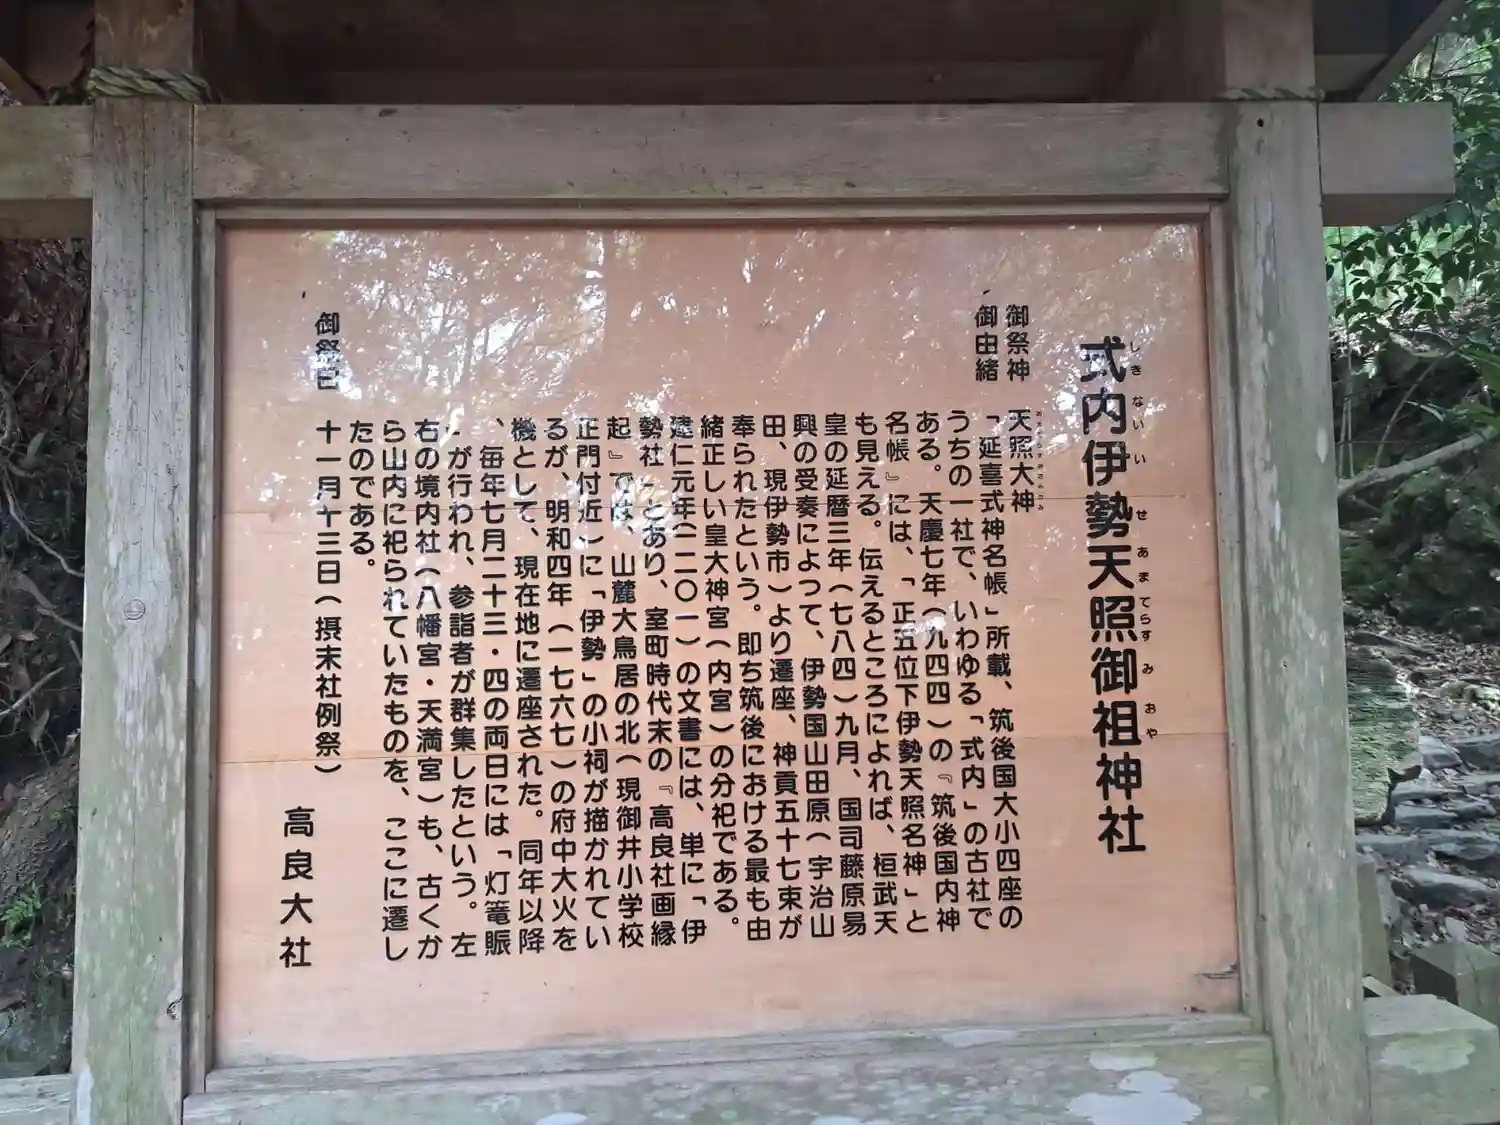 式内伊勢天照御祖神社
しきないいせあまてらすみおや
御祭神 天照大神
御由緒 「延喜式神名帳」所載、筑後国大小四座の
うちの一社で、いわゆる「式内」の古社で
ある。天慶七年(九四四)の『筑後国内神
名帳』には、「正五位下伊勢天照名神」と
も見える。伝えるところによれば、桓武天
皇の延暦三年(七八四)九月、国司藤原易
興の受奏によって、伊勢国山田原(宇治山
田、現伊勢市)より遷座、神貢五十七束が
奉られたという。即ち筑後における最も由
緒正しい皇大神宮(内宮)の分祀である。
建仁元年(一二〇一)の文書には、単に「伊
勢社」とあり、室町時代末の『高良社画縁
起』では、山麓大鳥居の北(現御井小学校
正門付近)に「伊勢」の小祠が描かれてい
るが、明和四年(一七六七)の府中大火を
機として、現在地に遷座された。同年以降
、毎年七月二十三・四の両日には「灯篭賑
」が行われ、参詣者が群集したという。左
右の境内社(八幡宮・天満宮)も、古くか
ら山内に祀られていたものを、ここに遷し
たのである。
御祭日 十一月十三日(摂末社例祭)
高良大社